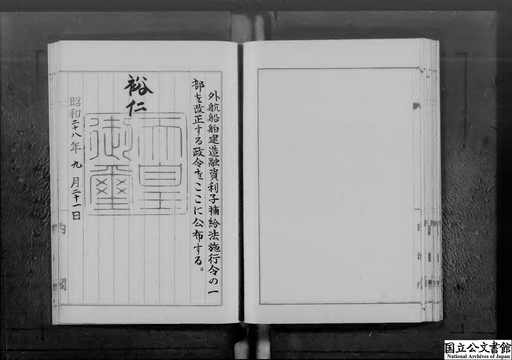 外航船舶建造融資利子補給法施行令の一
部を改正する政令をここに公布する。
裕仁
天皇
御璽
昭和二十八年九月二十一日
内閣
国立公文書館
National Archives of Japan